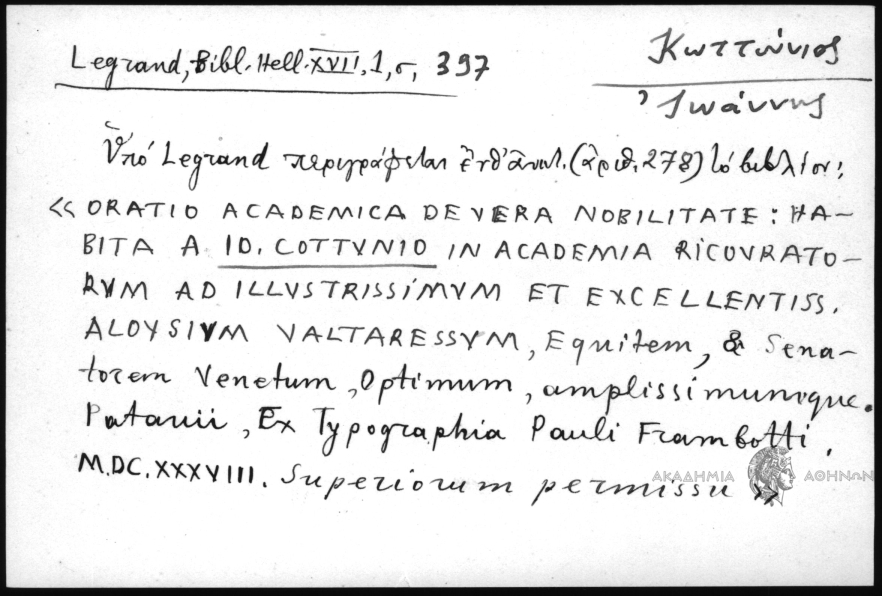 Legrand, Bibl. Hell. XVII, 1, σ, 397
Κωττούνιος
Ἰωάννης
Ὑπό Legrand περιγράφεται ἐνθ' ἀνωτ. (ἀριθ. 278) τό βιβλίον:
<< ORATIO ACADEMICA DE VERA NOBILITATE: HA-
BITA A IO. COTTVNIO IN ACADEMIA RICOVRATO-
RVM AD ILLVSTRISSIMVM ET EXCELLENTISS.
ALOYSIVM VALTARESSVM, Equitem, & Sena-
torem Venetum, Optimum, amplissimumque.
Patauii, Ex Typographia Pauli Frambotti.
M.DC.XXXVIII. Superiorum permissu >>
ΑΚΑΔΗΜΙΑ ΑΘΗΝΩΝ